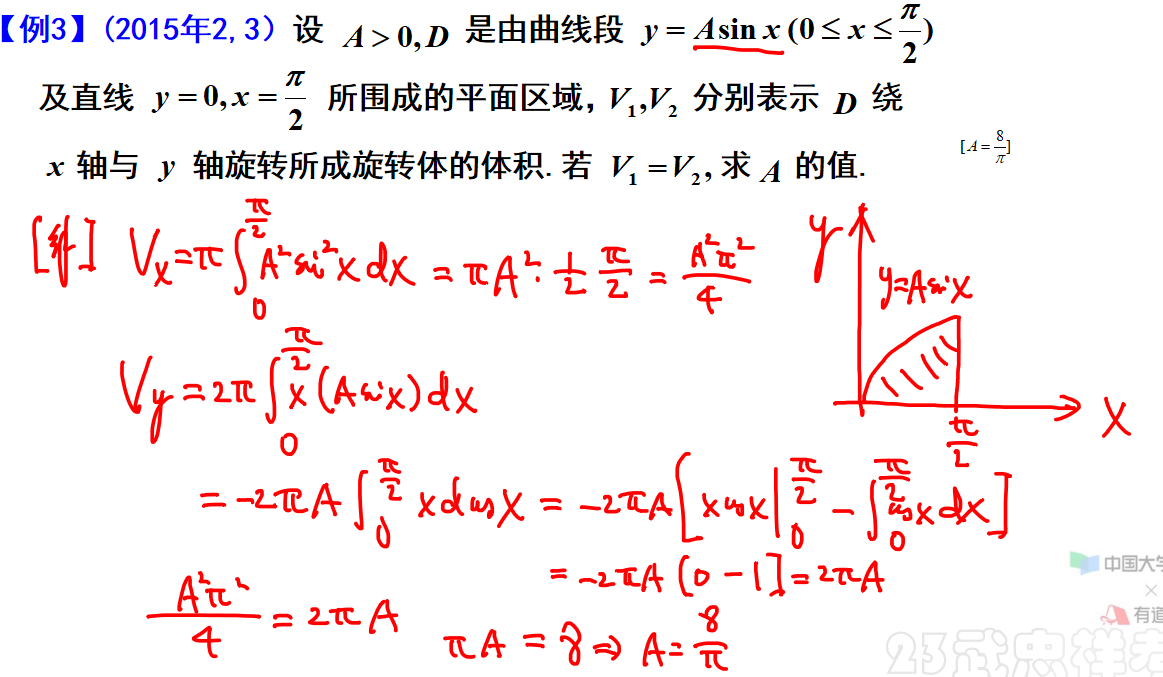 【例3】(2015年2,3) 设 A > 0, D 是由曲线段 y = A sin x (0 ≤ x ≤ π/2)
及直线 y = 0, x = π/2 所围成的平面区域, V₁,V₂ 分别表示 D 绕
x 轴与 y 轴旋转所成旋转体的体积. 若 V₁ = V₂, 求 A 的值.
[A = 8/π]
[解] Vx = π∫₀^(π/2) A² sin² x dx = πA² · 1/2 π/2 = A²π²/4
y
y=A sin x
Vy = 2π∫₀^(π/2) x (A sin x) dx
x
π/2
= -2πA ∫₀^(π/2) x d cos x = -2πA [x cos x |₀^(π/2) - ∫₀^(π/2) cos x dx]
= -2πA [0 - 1] = 2πA
A²π²/4 = 2πA
πA = 8 ⇒ A = 8/π
中国大学
有道
23武忠祥考